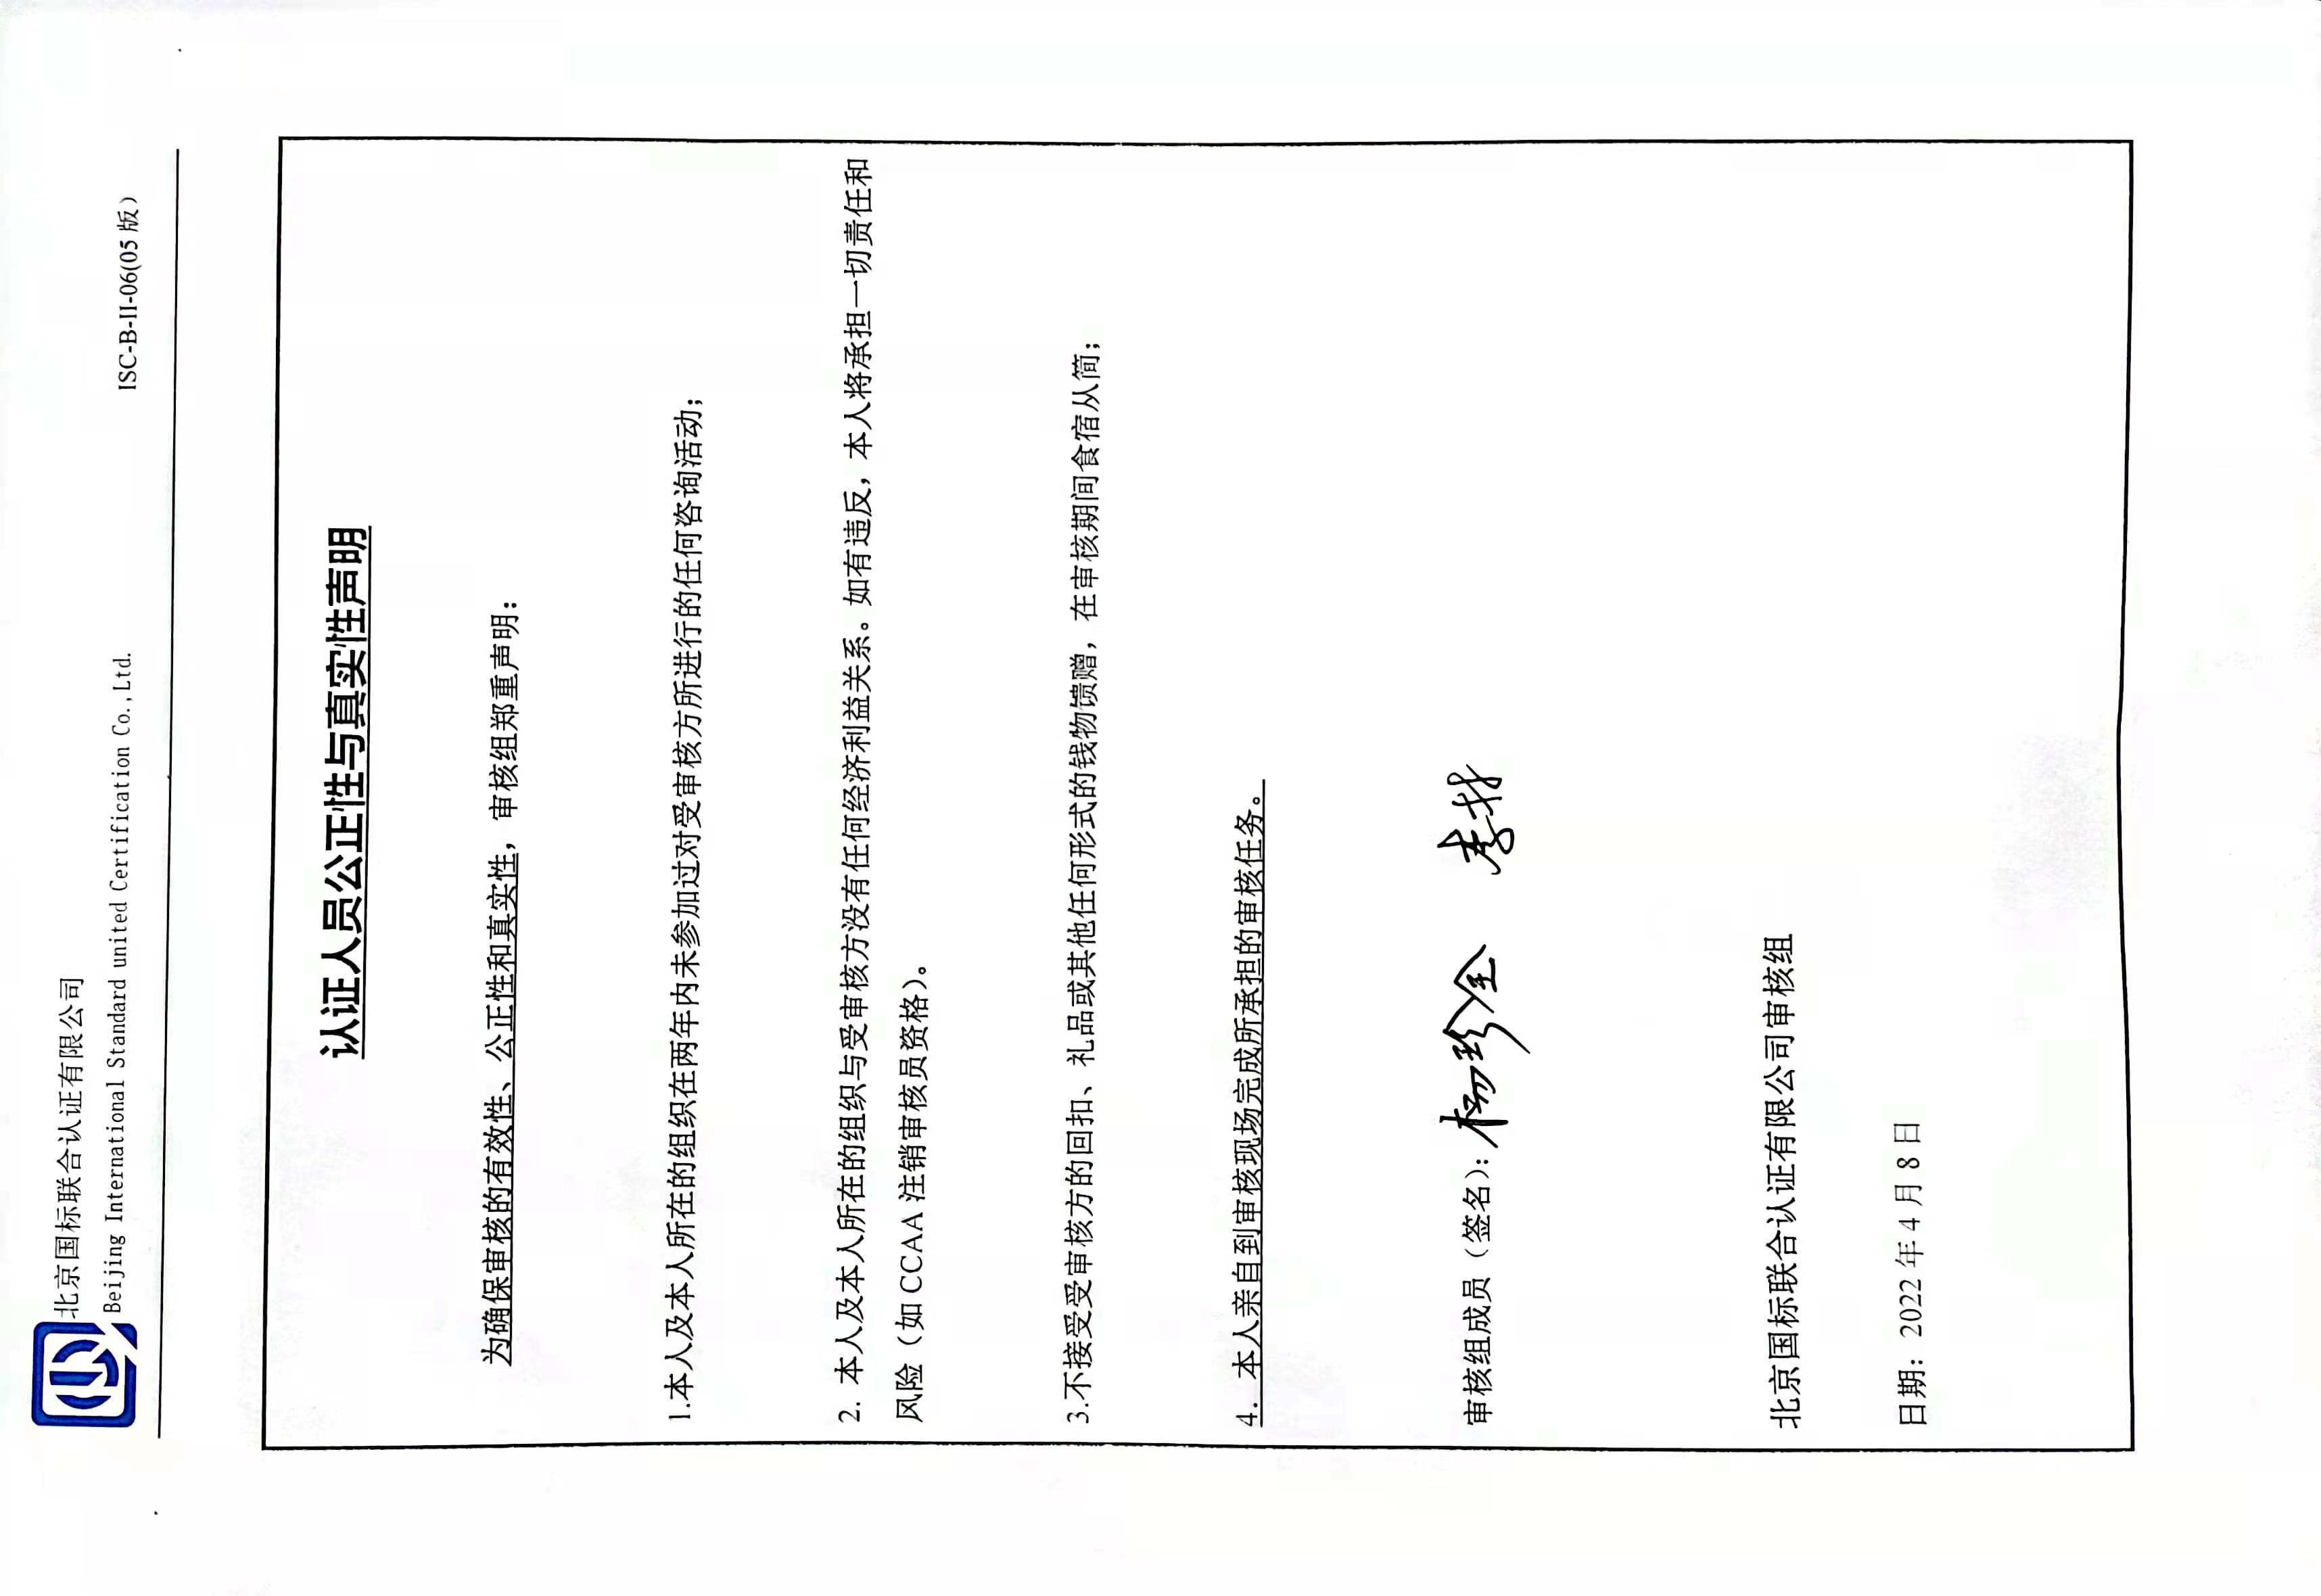 北京国标联合认证有限公司
Beijing International Standard united Certification Co.,Ltd.
ISC-B-II-06(05 版)
认证人员公正性与真实性声明
为确保审核的有效性、公正性和真实性，审核组郑重声明：
1.本人及本人所在的组织在两年内未参加过对受审核方所进行的任何咨询活动；
2. 本人及本人所在的组织与受审核方没有任何经济利益关系。如有违反，本人将承担一切责任和
风险（如 CCAA 注销审核员资格）。
3.不接受受审核方的回扣、礼品或其他任何形式的钱物馈赠，在审核期间食宿从简；
4. 本人亲自到审核现场完成所承担的审核任务。
审核组成员（签名）：杨珍全
北京国标联合认证有限公司审核组
日期：2022 年 4 月 8 日